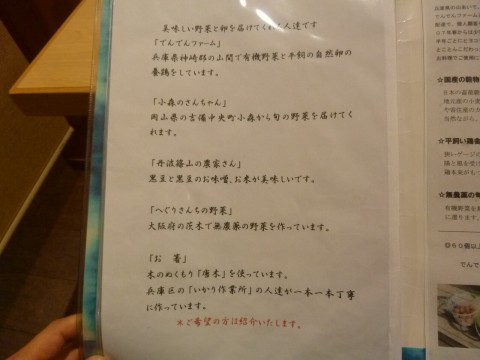 美味しい野菜と卵を届けてくれる人達です
「でんでんファーム」
兵庫県神崎郡の山間で有機野菜と平飼の自然卵の
養鶏をしています。
「小森のさんちゃん」
岡山県の吉備中央町小森から旬の野菜を届けてく
れます。
「丹波篠山の農家さん」
黒豆と黒豆のお味噌、お米が美味しいです。
「へぐりさんちの野菜」
大阪府の茨木で無農薬の野菜を作っています。
「お 箸」
木のぬくもり「唐木」を使っています。
兵庫区の「いかり作業所」の人達が一本一本丁寧
に作っています。
※ご希望の方は紹介いたします。
兵庫県の山あいで、
でんでんファーム
☆国産の穀物
日本の
☆平飼い鶏舎
狭いケージ
☆無農薬の
有機野菜を
に適します。
でんで